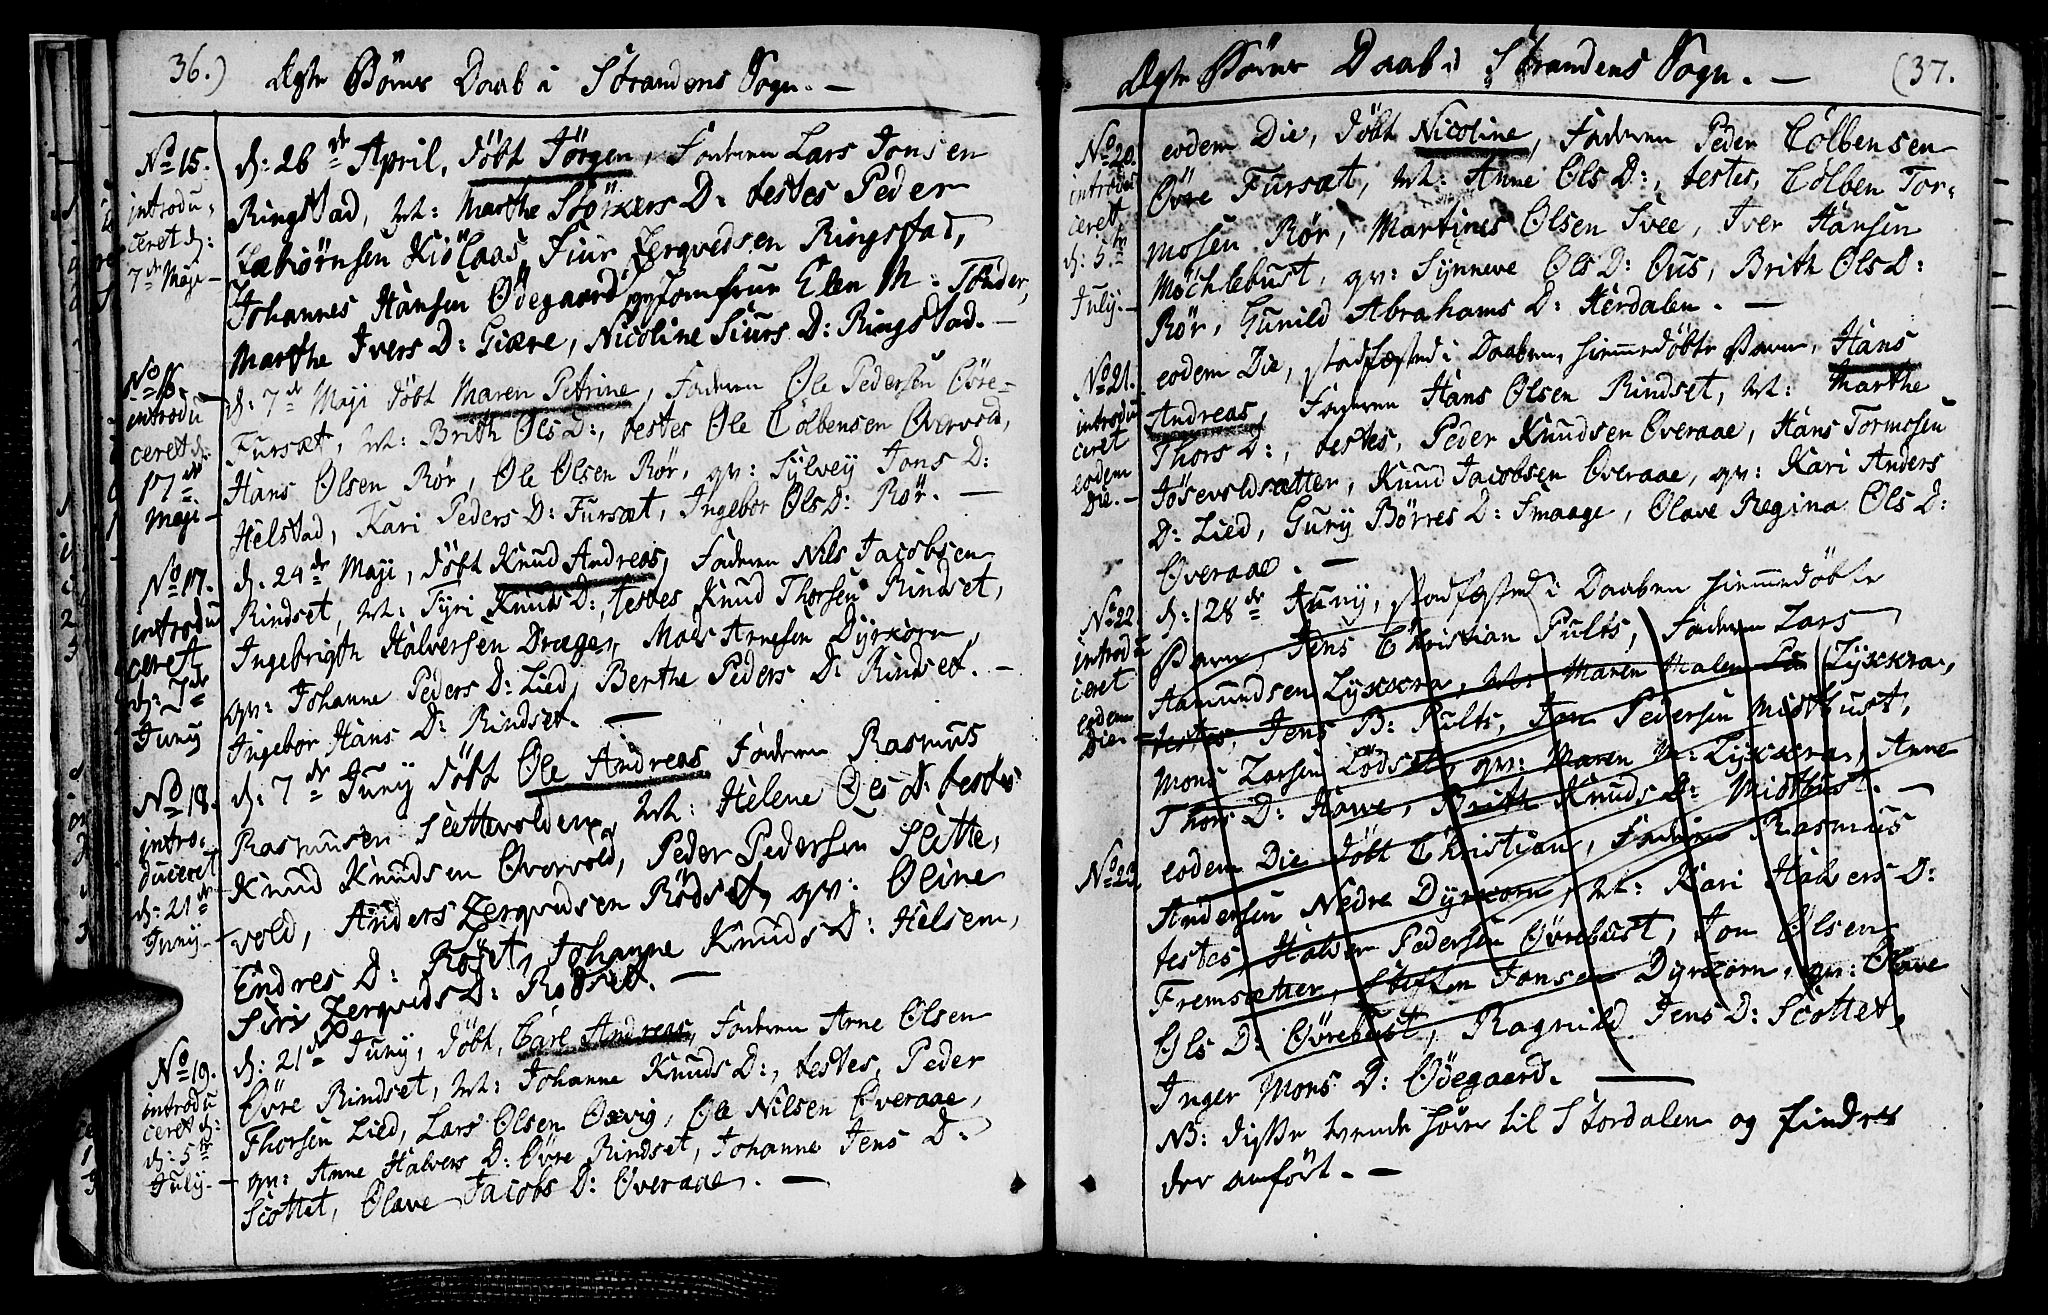 36.) Ægte Børns Daab i Strandens Sogn. —
No 15.
introdu:
ceret d:
7de Maji —
d: 26de April, døbt Jörgen, Faderen Lars Jonsen
Ringstad, M: Marthe Störkers D: testes Peder
Johannes Hansen Ödegaard, Jomfrue Elen M: Tönder,
Marthe Ivers D: Giære, Nicoline Siurs D: Ringstad. —
No 16.
introdu
ceret d:
17de
Maji —
d: 7de Maji døbt Maren Petrine, Faderen Ole Pedersen Övre-
Fursæt, M: Brith Ols D:, testes Ole Cölbensen Overvold,
Hans Olsen Rör, Ole Olsen Rör, qv: Sylvey Jons D:
Helstad, Kari Peders D: Fursæt, Ingebor Ols D: Rör. —
No 17.
introdu
ceret
d: 7de
Juny
d: 24de Maji, døbt Knud Andreas, Faderen Nils Jacobsen
Rindset, M: Tyri Knuds D:, testes Knud Thorsen Rindset,
Ingebrigth Halversen Drager, Mads Arnesen Dyrkorn,
qv: Johanne Peders D: Lied, Berthe Peders D: Rindset. —
Ingebor Hans D: Rindset. —
No 18.
intro-
duceret
d: 21de
Juny —
d: 7de Juny døbt Ole Andreas Faderen Rasmus
Rasmusen Slettevolden, M: Helene Ols D: testes
Knud Knudsen Overvold, Peder Pedersen Slette,
vold, Anders Zerqvidsen Rödset, qv: Oline
Endres D: Rofet, Johanne Knuds D: Helsem,
Siri Zerqvids D: Rödset. —
No 19.
introdu
ceret d:
d: 5te
July. —
d: 21de Juny, døbt, Carl Andreas, Faderen Arne Olsen
Övre Rindset, M: Johanne Knuds D:, testes, Peder
Thorsen Lied, Lars Olsen Oxvig, Ole Nilsen Overaae,
qv: Anne Halvers D: Övre Rindset, Johanne Jens D:
Scottet, Olave Jacobs D: Overaae. —
Ægte Børns Daab i Strandens Sogn. — (37.
No 20.
introdu
ceret
d: 5te
July. —
eodem Die, døbt Nicoline, Faderen Peder Cölbensen
Övre Fursæt, M: Anne Ols D:, testes, Cölben Tor-
mosen Rör, Martines Olsen Svee, Iver Hansen
Mochlebust, qv: Synneve Ols D: Ous, Brith Ols D:
Rör, Gunild Abrahams D: Herdalen. —
No 21.
introdu
ceret
eodem
Die. —
eodem Die, stadfæsted i Daaben, hiemmedøbte Barn, Hans
Andreas, Faderen Hans Olsen Rindset, M: Marthe
Thors D:, testes, Peder Knudsen Overaae, Hans Tormosen
Jösevoldsætter, Knud Jacobsen Overaae, qv: Kari Anders
D: Lied, Gury Börres D: Smaage, Olave Regina Ols D:
Overaae. —
No 22.
introdu
ceret
eodem
Die —
d: 28de Juny, stadfæsted i Daaben hiemmedøbte
Barn, Jens Christian Pults, Faderen Lars
Aamundsen Lyxkra, M: Maren Malen Lyxkra,
testes, Jens B: Pults, Jon Pedersen Midtbust,
Mons Larsen Lödset, qv: Maren M: Lyxkra, Anne
Thors D: Hawe, Brith Knuds D: Midtbust. —
No 23.
eodem Die døbt Christian, Faderen Rasmus
Andersen Nedre Dyrkorn, M: Kari Halvers D:
testes, Halvor Pedersen Övrebust, Jon Olsen
Fremsætter, Steffen Jonsen Dyrkorn, qv: Olave
Ols D: Övrebust, Ragnild Jens D: Scottet,
Inger Mons D: Ödegaard. —
NB: disse tvende hører til Stordalen og findes
der anført. —